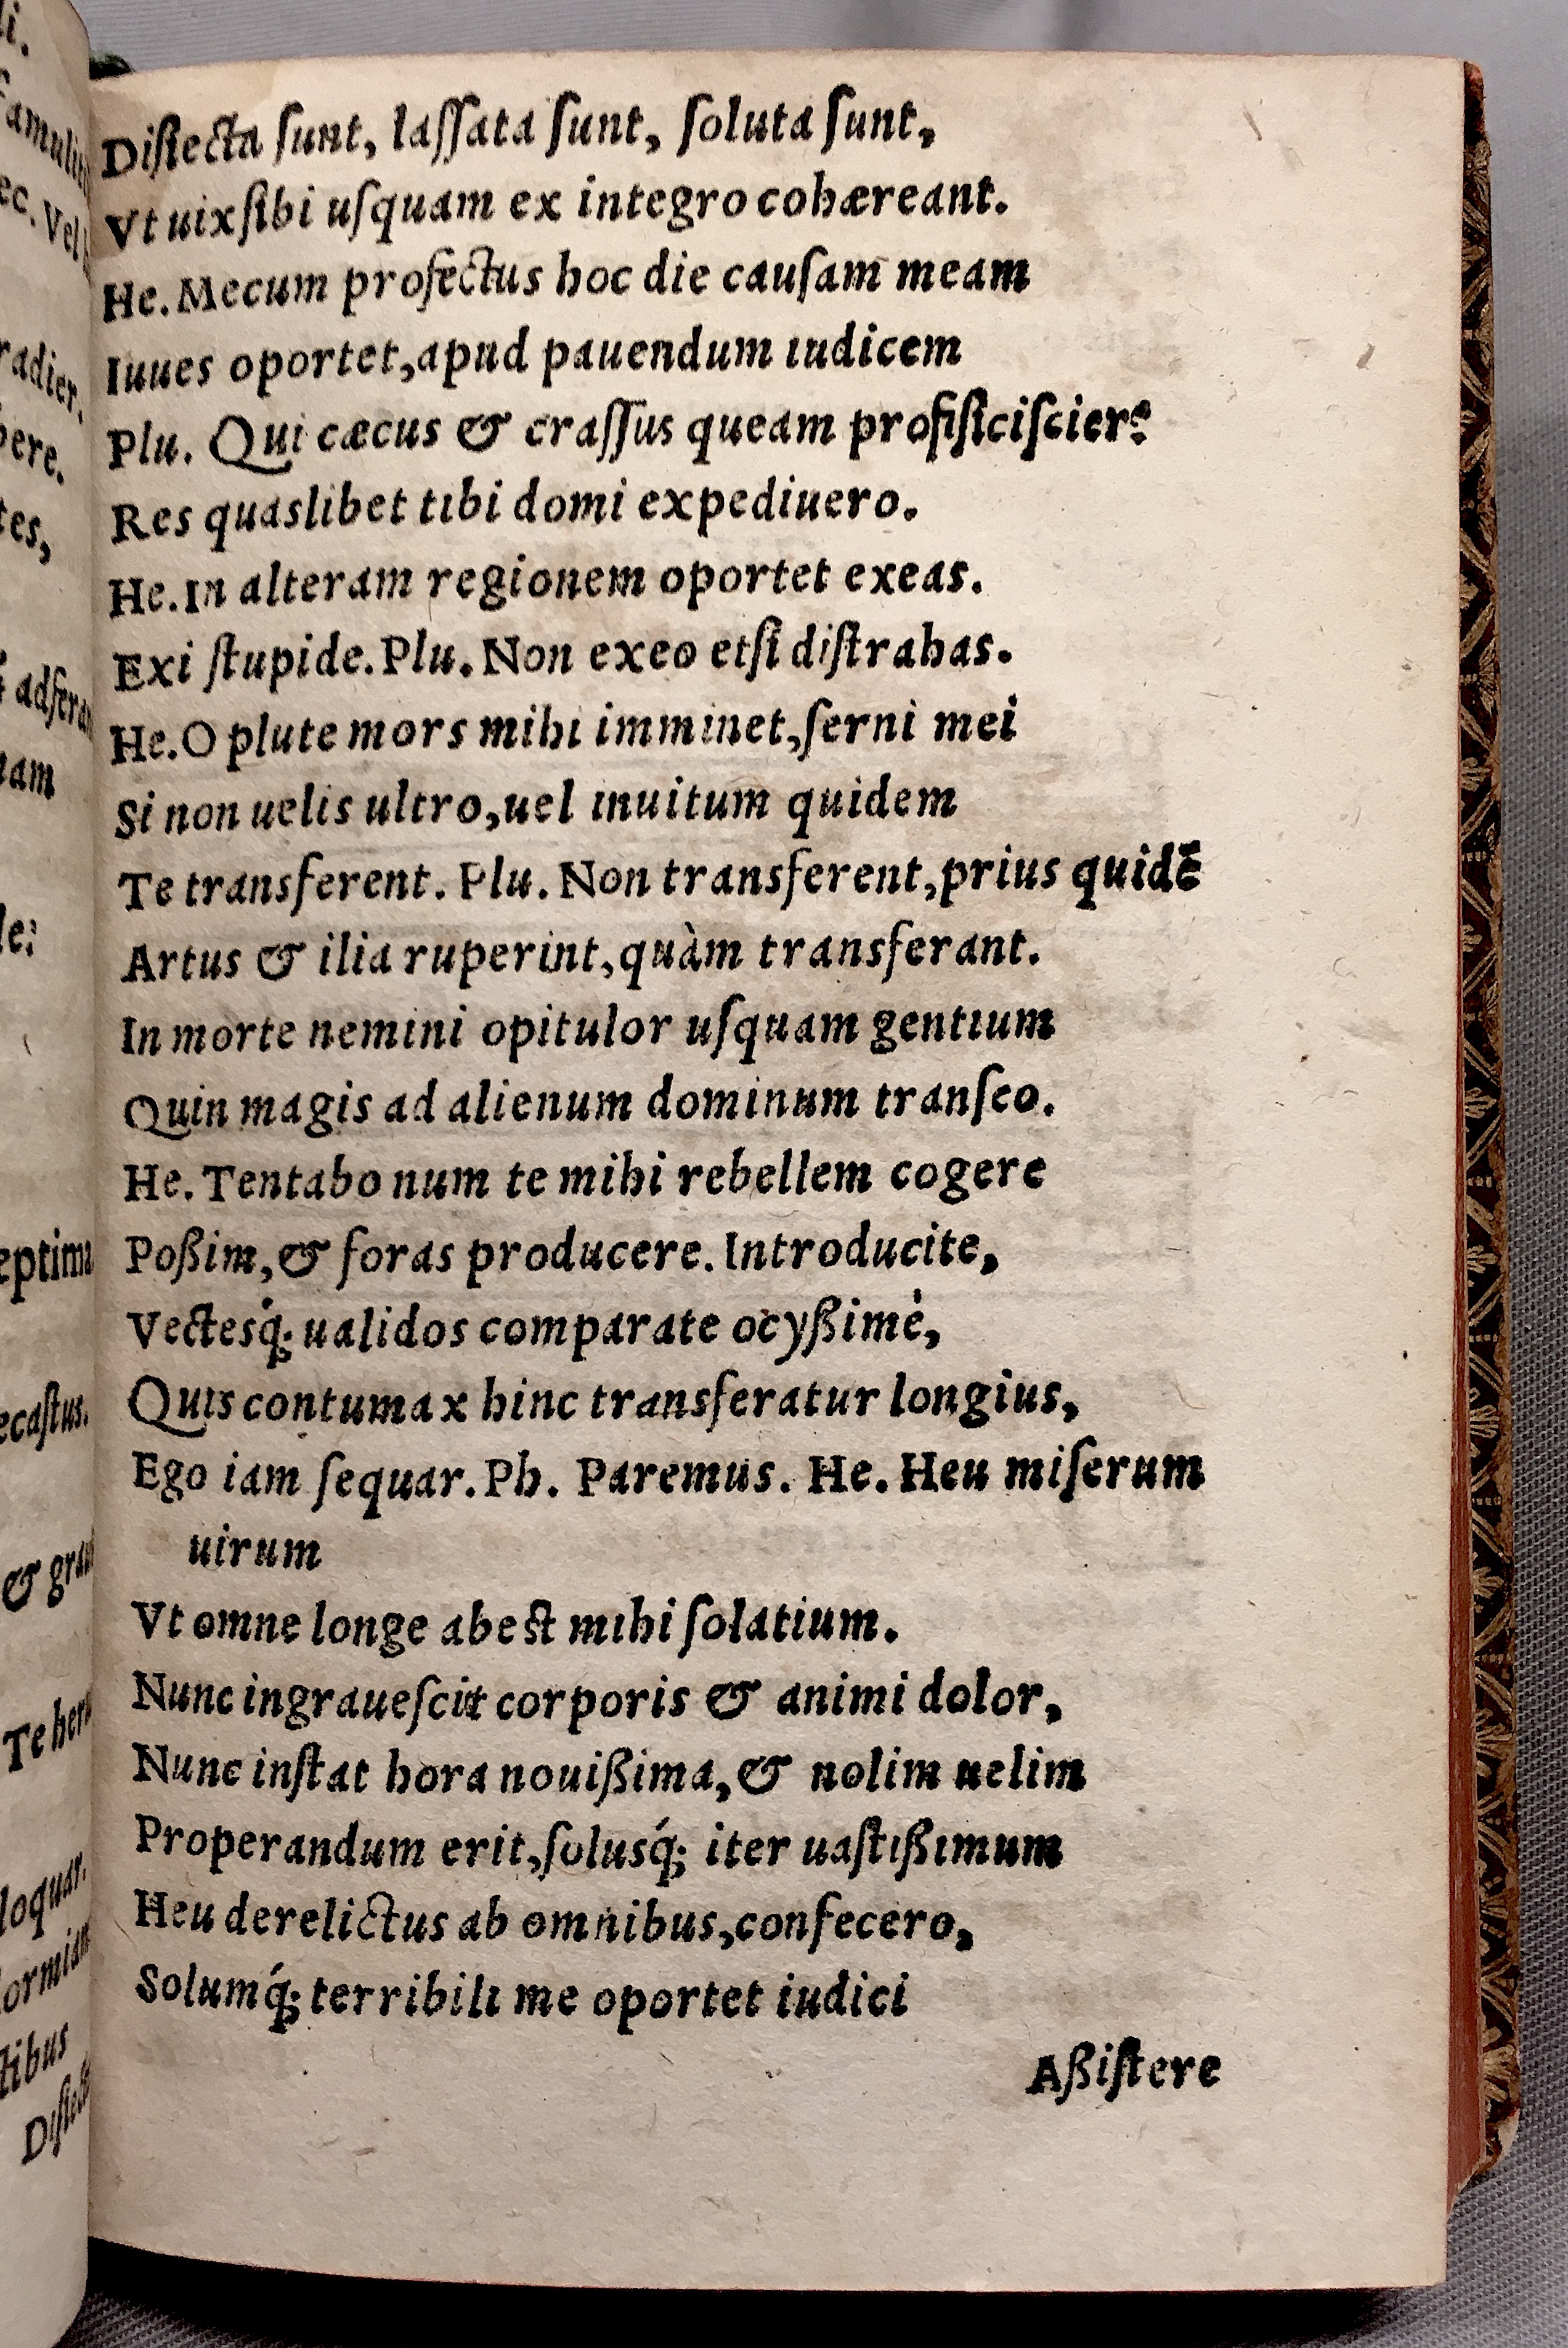 Diſiecta ſunt, laſſata ſunt, ſoluta ſunt,
Vt uix ſibi uſquam ex integro cohæreant.
He. Mecum profectus hoc die cauſam meam
Iuues oportet, apud pauendum iudicem
Plu. Qui cæcus & craſſus queam profiſiciſcier?
Res quaslibet tibi domi expediuero.
He. In alteram regionem oportet exeas.
Exi ſtupide. Plu. Non exeo etſi diſtrahas.
He. O plute mors mihi imminet, ſerni mei
Si non uelis ultro, uel inuitum quidem
Te transferent. Plu. Non transferent, prius quidē
Artus & ilia ruperint, quàm transferant.
In morte nemini opitulor uſquam gentium
Quin magis ad alienum dominum tranſeo.
He. Tentabo num te mihi rebellem cogere
Poßim, & foras producere. Introducite,
Vectesq́; ualidos comparate ocyßimè,
Quis contumax hinc transferatur longius,
Ego iam ſequar. Ph. Paremus. He. Heu miſerum
uirum
Vt omne longe abest mihi ſolatium.
Nunc ingraueſcit corporis & animi dolor,
Nunc inſtat hora nouißima, & nolim uelim
Properandum erit, ſolusq́; iter uaſtißimum
Heu derelictus ab omnibus, confecero,
Solumq́; terribili me oportet iudici
Aßiſtere